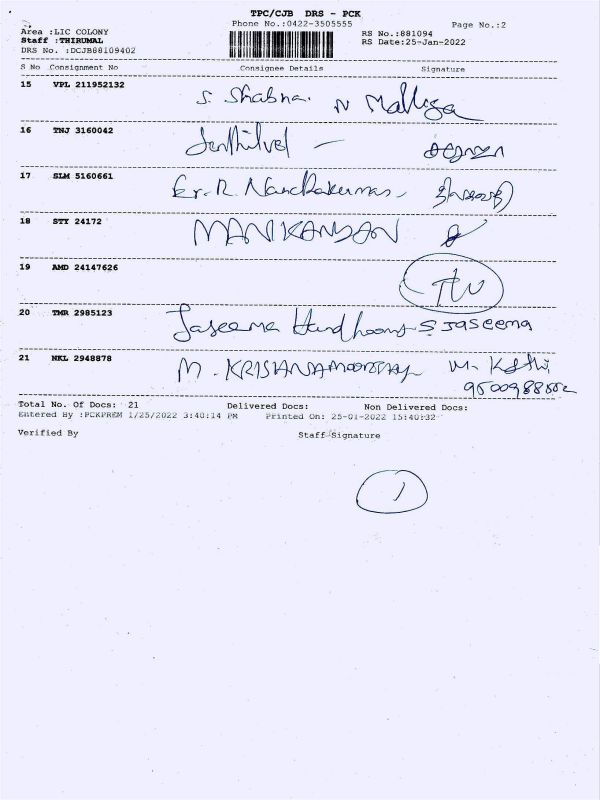 TPC/CJB DRS - PCK
Phone No.:0422-3505555
Page No.:2
Area :LIC COLONY
Staff :THIRUMAL
DRS No. :DCJB88109402
RS No.:881094
RS Date:25-Jan-2022
S No Consignment No Consignee Details Signature
15 VPL 211952132 S. Shabna. N Malliga
16 TNJ 3160042 Senthilvel —
17 SLM 5160661 Er. R. Nandakumar
18 STY 24172 MANIKANDAN
19 AMD 24147626
20 TMR 2985123 Jaseema S. Jaseema
21 NKL 2948878 M. KRISHNAMOORTHY M.
Total No. Of Docs: 21 Delivered Docs: Non Delivered Docs:
Entered By :PCKPREM 1/25/2022 3:40:14 PM Printed On: 25-01-2022 15:40:32
Verified By Staff Signature
1